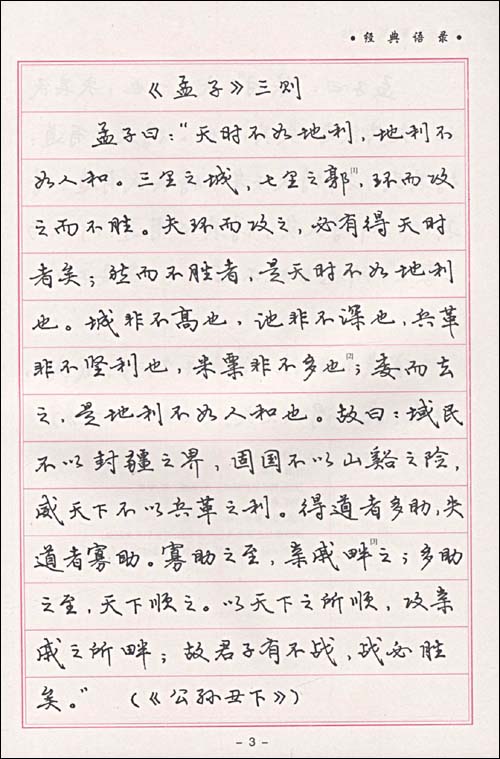 ·经典语录·
《孟子》三则
孟子曰：“天时不如地利，地利不
如人和。三里之城，七里之郭[1]，环而攻
之而不胜。夫环而攻之，必有得天时
者矣；然而不胜者，是天时不如地利
也。城非不高也，池非不深也，兵革
非不坚利也，米粟非不多也[2]；委而去
之，是地利不如人和也。故曰：域民
不以封疆之界，固国不以山谿之险，
威天下不以兵革之利。得道者多助，失
道者寡助。寡助之至，亲戚畔[3]之；多助
之至，天下顺之。以天下之所顺，攻亲
戚之所畔；故君子有不战，战必胜
矣。”（《公孙丑下》）
- 3 -